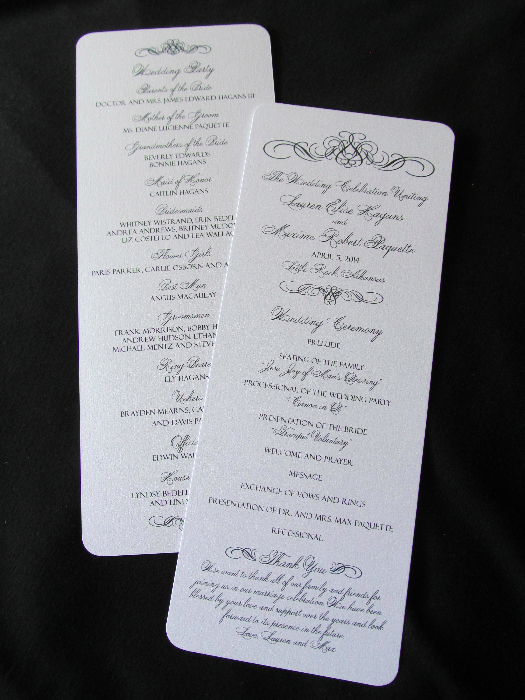 Wedding Party
Parents of the Bride
DOCTOR AND MRS. JAMES EDWARD HAGANS III
Mother of the Groom
MS. DIANE LUCIENNE PAQUETTE
Grandmothers of the Bride
BEVERLY EDWARDS
BONNIE HAGANS
Maid of Honor
CAITLIN HAGANS
Bridesmaids
WHITNEY WISTRAND, ERIN
ANDREA ANDREWS, BRITNEY
LIZ COSTELLO AND LEA
Flower Girls
PARIS PARKER, CARLIE OSBORN AND
Best Man
ANGUS MACAULAY
Groomsmen
FRANK MORRISON, BOBBY
ANDREW HUDSON, ETHAN
MICHAEL MENTZ AND
Ring
ELY HAGANS
BRAYDEN MEARNS,
AND DAVIS
EDWIN
LYNDSY
AND
The Wedding Celebration Uniting
Lauren Elise Hagans
and
Maxime Robert Paquette
APRIL 5, 2014
Little Rock, Arkansas
Wedding Ceremony
PRELUDE
SEATING OF THE FAMILY
"Jesu, Joy of Man's Desiring"
PROCESSIONAL OF THE WEDDING PARTY
"Canon in D"
PRESENTATION OF THE BRIDE
"Trumpet Voluntary"
WELCOME AND PRAYER
MESSAGE
EXCHANGE OF VOWS AND RINGS
PRESENTATION OF DR. AND MRS. MAX PAQUETTE
RECESSIONAL
Thank You
We want to thank all of our family and friends for
joining us in our marriage celebration. We have been
blessed by your love and support over the years and look
forward to its presence in the future.
Love, Lauren and Max